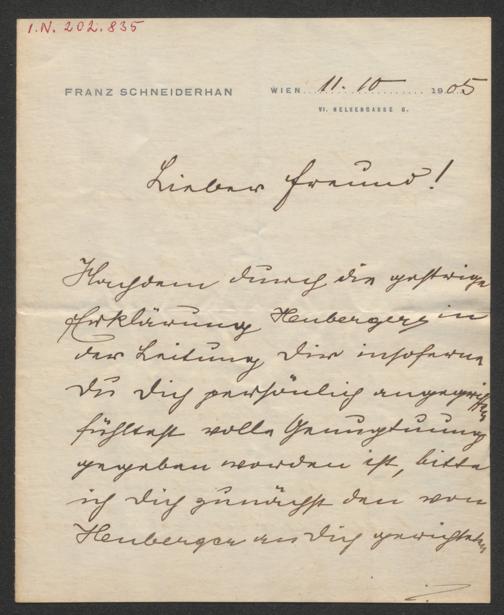 I.N. 202.835
FRANZ SCHNEIDERHAN WIEN 11. 10 1905
VI. NELKENGASSE 6.
Lieber Freund!
Nachdem durch die gestrige
Erklärung Heubergers in
der Leitung Dir insoferne
Du Dich persönlich angegriffen
fühltest volle Genugtuung
gegeben worden ist, bitte
ich Dich zunächst den von
Heuberger an Dich gerichteten